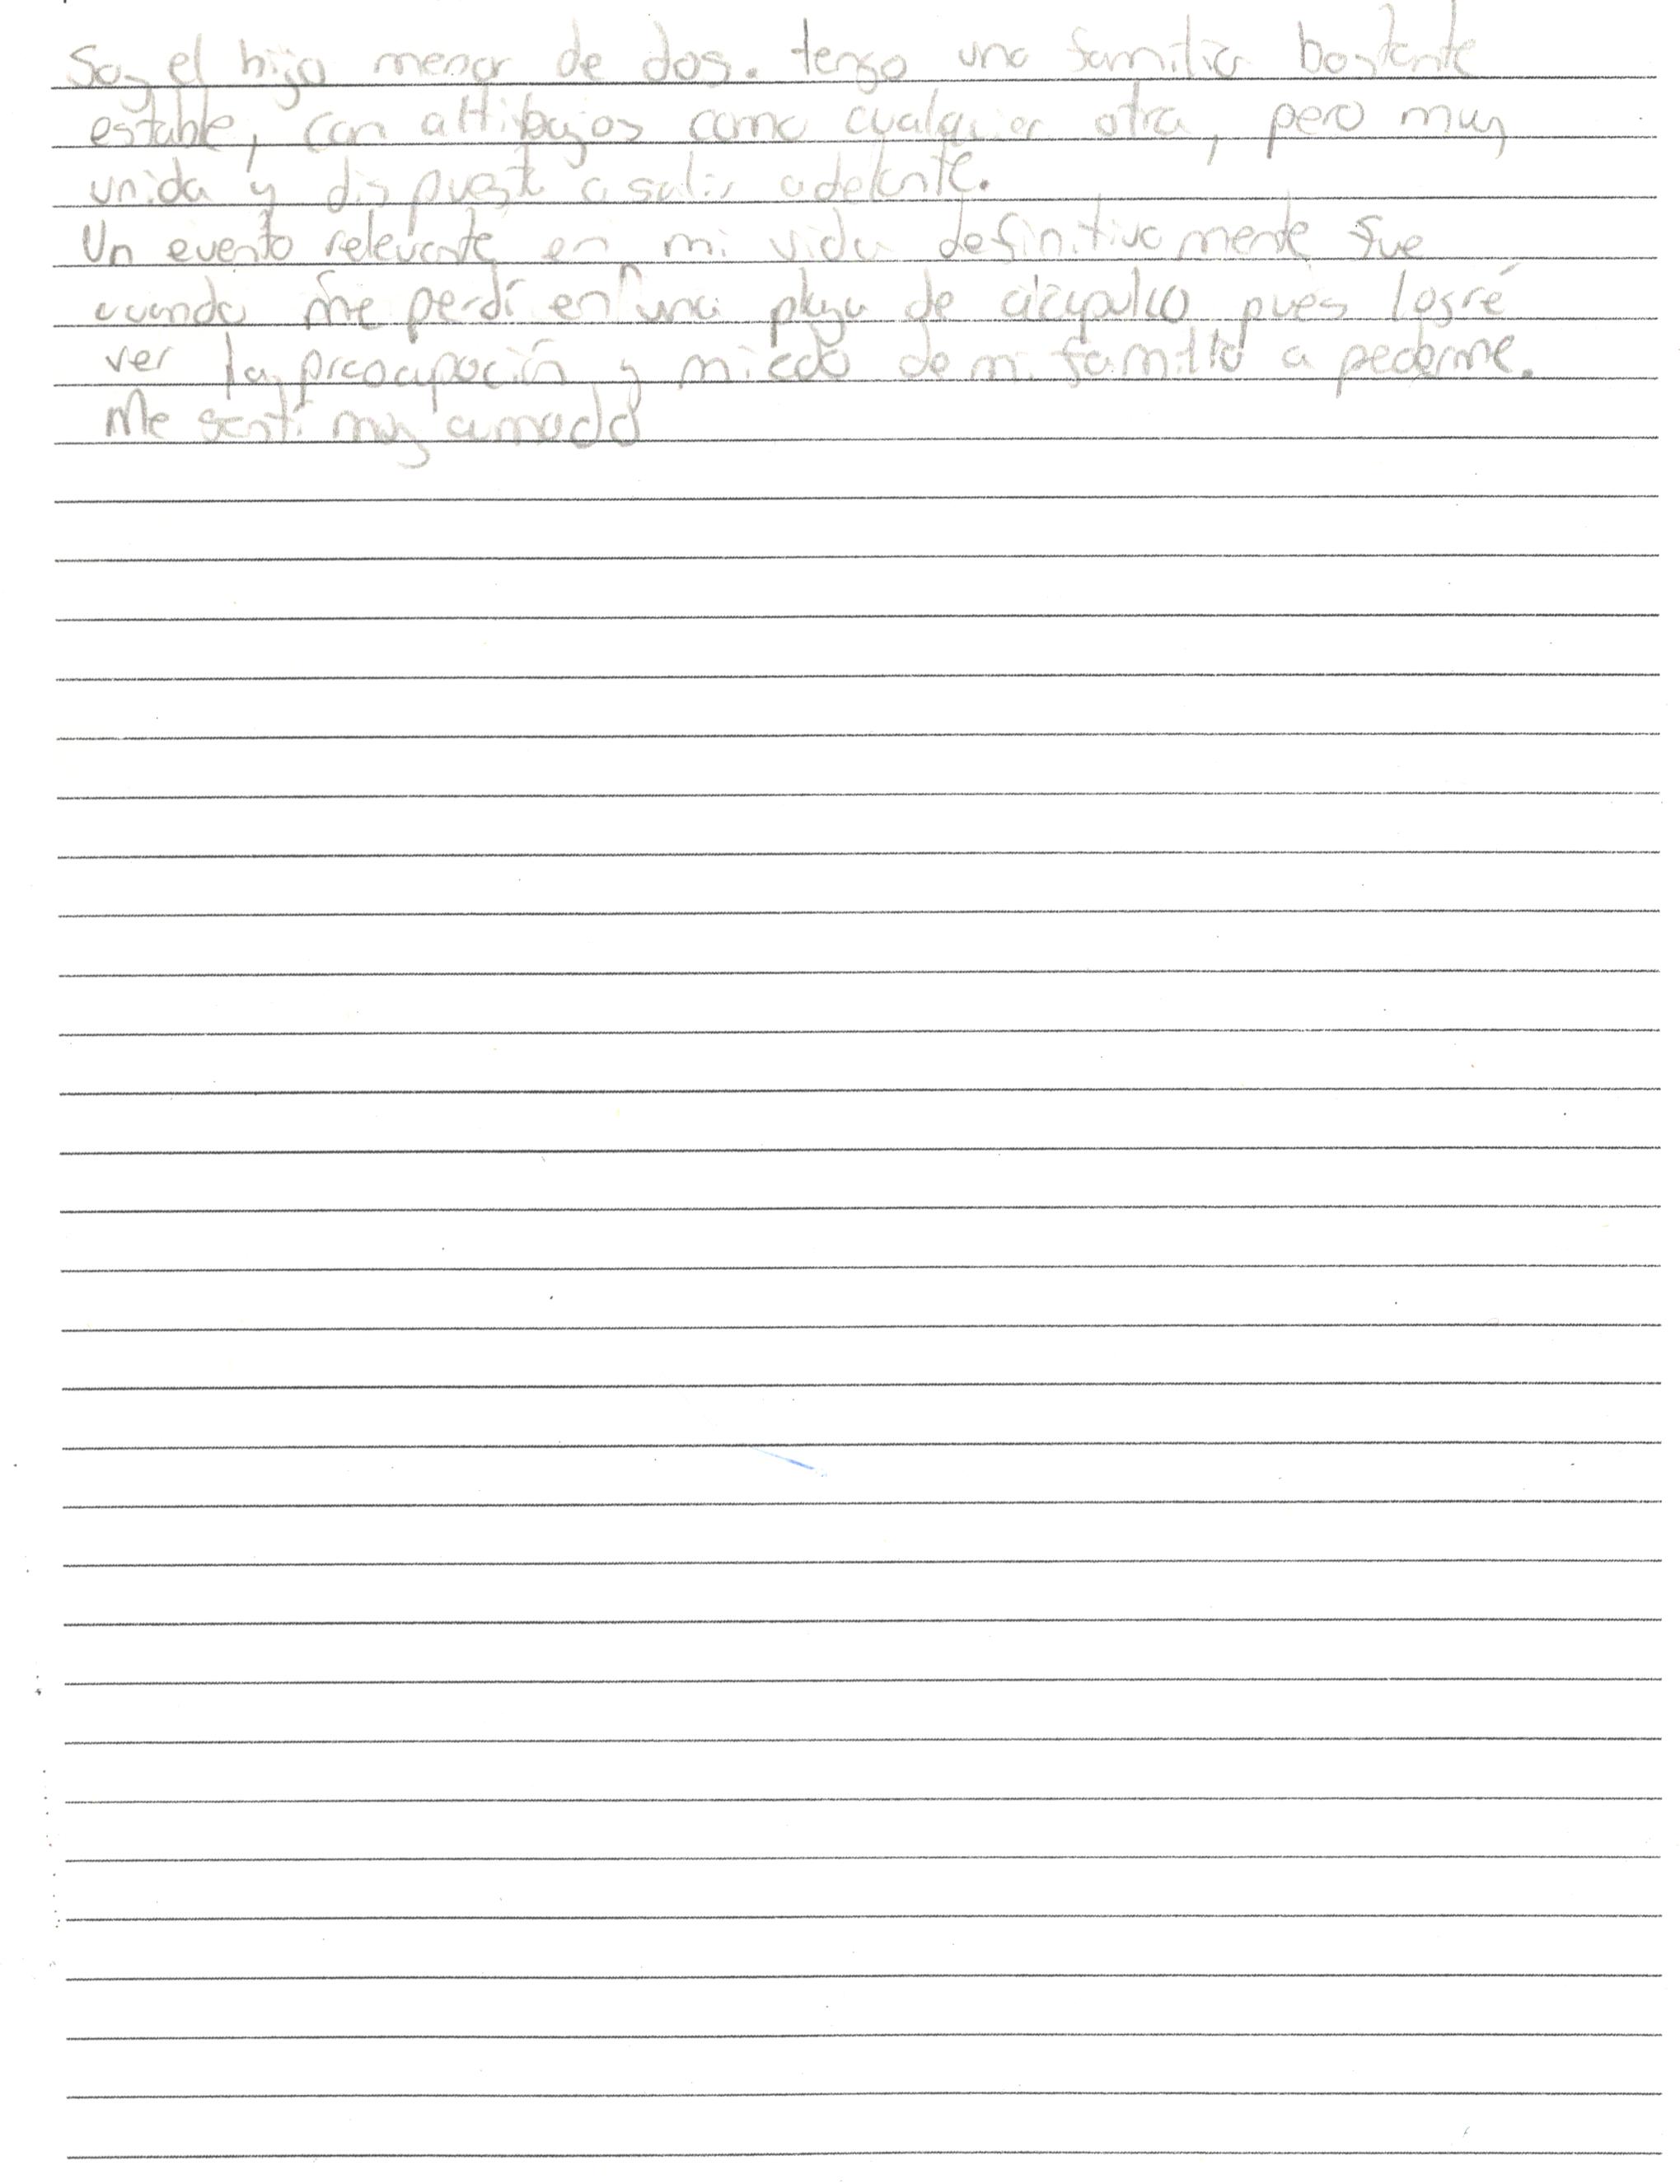 Soy el hijo menor de dos. tengo una familia bastante
estable, con altibajos como cualquier otra, pero muy
unida y dispuesta a salir adelante.
Un evento relevante en mi vida definitivamente fue
cuando me perdí en una playa de acapulco pues logré
ver la preocupación y miedo de mi familia a pederme.
Me sentí muy amado